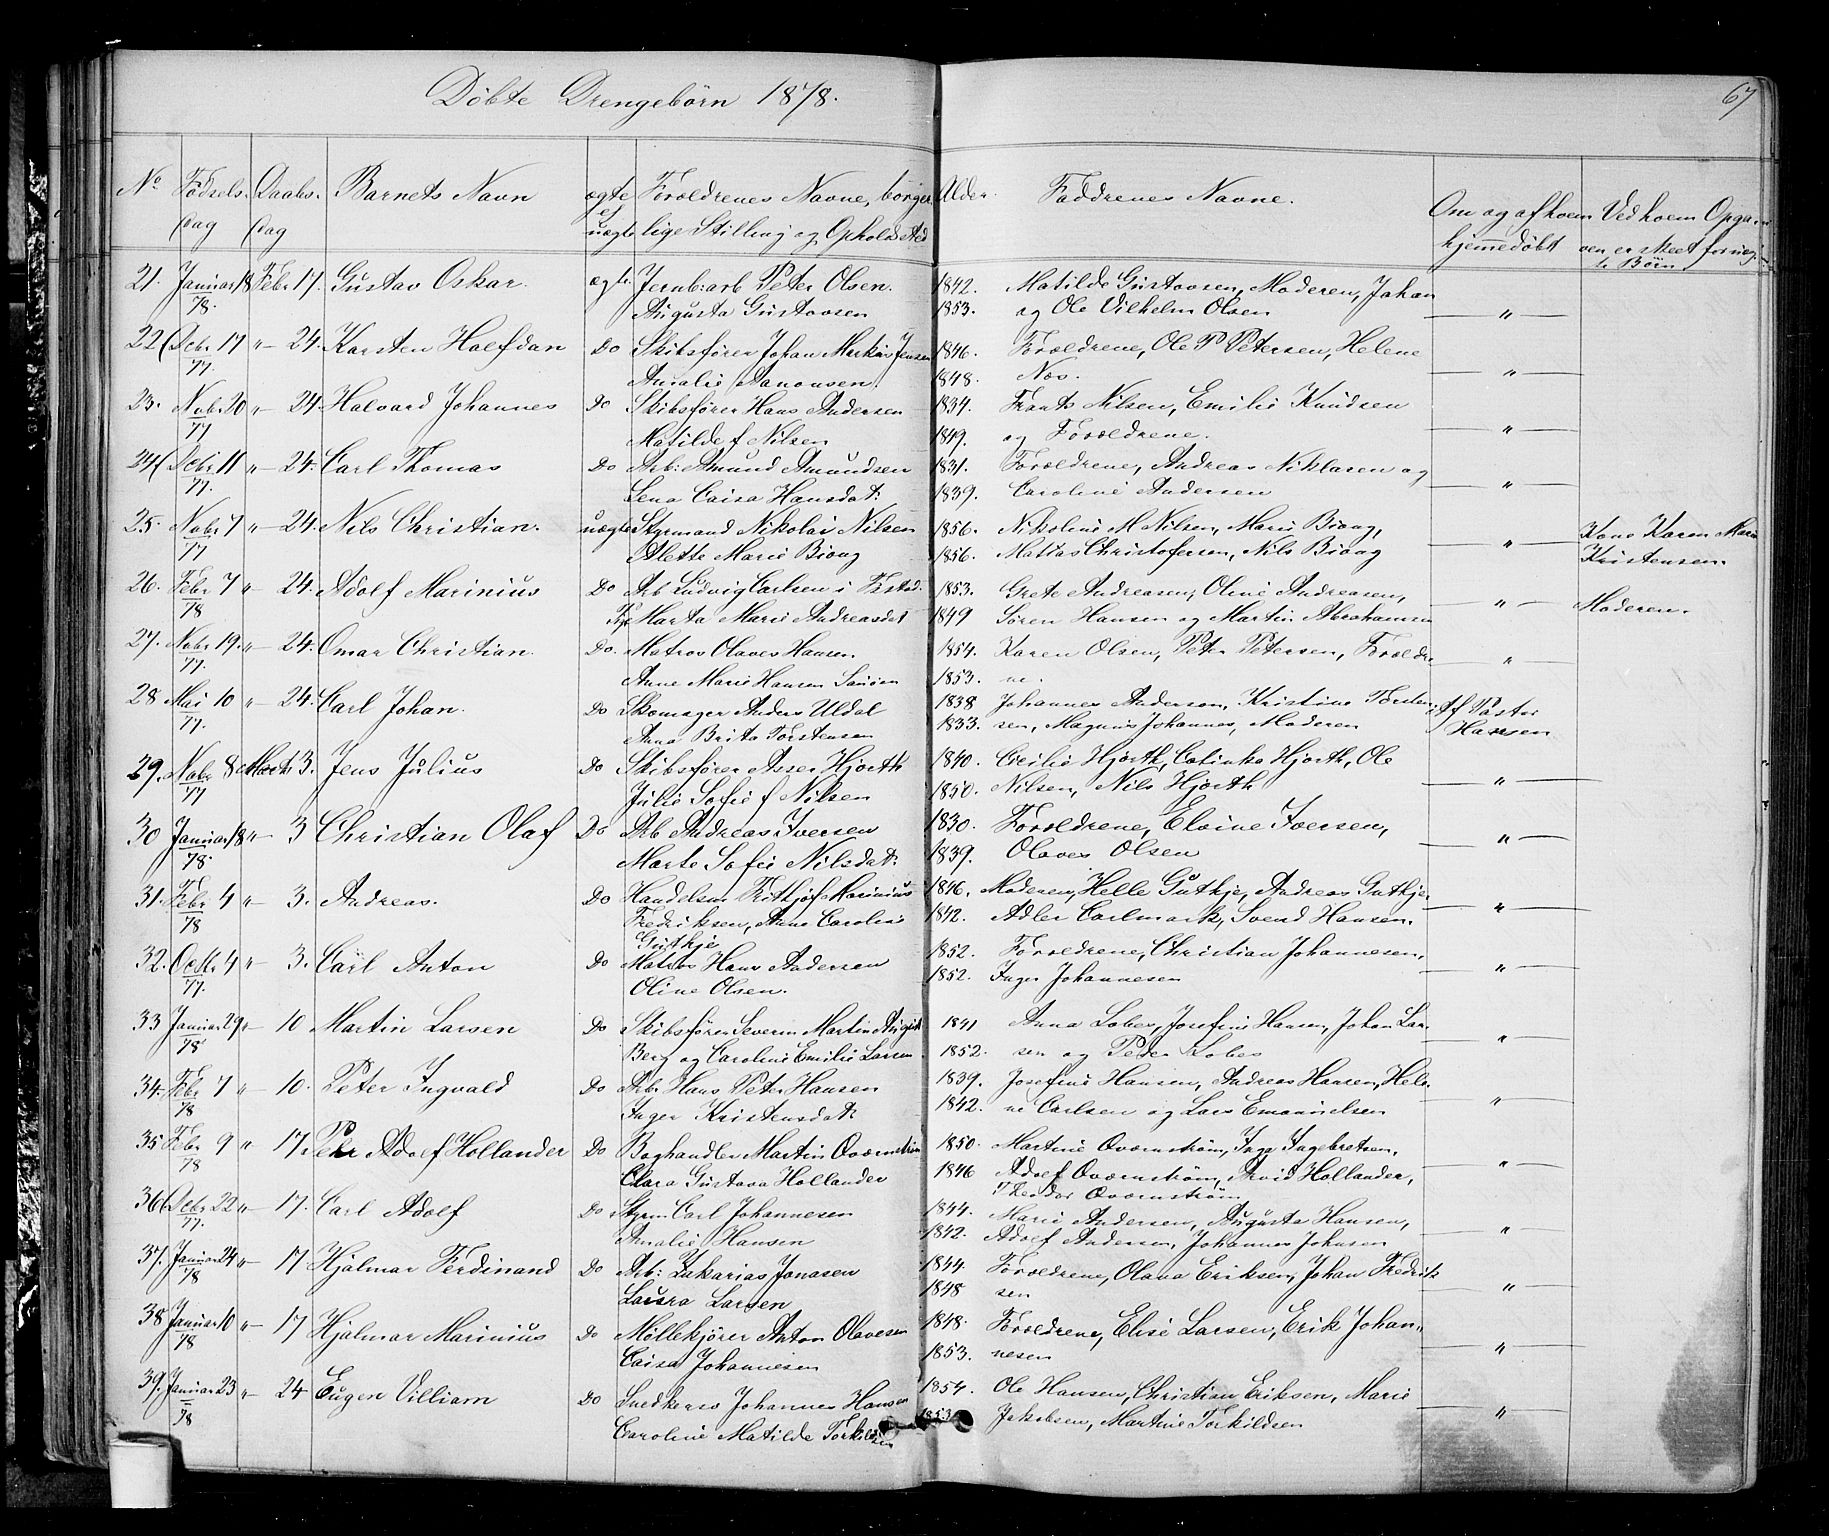 Döbte Drengebörn 1878.
67
No Födsels- dag Daabs- dag Barnets Navn ægte el uægte Forældrenes Navne, borger- lige Stilling og Opholdssted Alder. Faddrenes Navne. Om og af hvem hjemmedöbt Ved hvem Opga- ven er skeet for uæg- te Börn
21. Januar 18 Febr 17. Gustav Oskar. ægte Jernb:arb Peter Olsen. 1842. Matilde Gustavsen, Moderen, Johan
78. Augusta Gustavsen 1853. og Ole Vilhelm Olsen "
22 Decbr 17 " 24. Karsten Halfdan Do Skibsförer Johan Markus Jensen 1846. Forældrene, Ole P Petersen, Helene
77. Amalie Aanonsen. 1848. Næs. "
23. Nobr 20 " 24. Halvard Johannes Do Skibsförer Hans Andersen 1834. Frants Nilsen, Emilie Knudsen
77 Matilde f Nilsen 1849. og Forældrene. "
24 Decbr 11 " 24. Carl Thomas Do Arb: Amund Amundsen 1831. Forældrene, Andreas Niklasen og
77. Lena Caisa Hansdat: 1839. Caroline Andersen "
25. Nobr 7 " 24. Nils Christian. uægte Styrmand Nikolai Nilsen 1856. Nikoline M Nilsen, Marie Bioug, Kone Karen Marie
77 Alette Marie Bioug 1856. Matias Christofersen, Nils Bioug " Kristensen.
26. Febr 7 " 24. Adolf Marinius Do Arb Ludvig Carlsen i Frstad. 1853. Grete Andreasen, Oline Andreasen,
78 Pige Marta Marie Andreasdat 1849 Sören Hansen og Martin Abrahamsen " Moderen.
27. Nobr 19. " 24. Omar Christian. Do. Matros Olaves Hansen 1854. Karen Olsen, Peter Petersen, Forældre
77. Anne Marie Hansen 1853. ne. "
28 Mai 10 " 24. Carl Johan. Do Skomager Anders Uldal 1838 Johannes Anderson, Kristine Torsten- Af Pastor
77. Anna Brita Torstensen 1833. sen, Magnus Johannes, Moderen Hansen
29. Nobr 8 Marts 3. Jens Julius Do Skibsförer Asser Hjorth 1840. Cecilie Hjorth, Catinka Hjorth, Ole
77 Julie Sofie f Nilsen 1850. Nilsen, Nils Hjorth "
30 Januar 18 " 3 Christian Olaf Do Arb Andreas Iversen 1830. Forældrene, Elvine Iversen,
78. Marte Sofie Nilsdat: 1839. Olaves Olsen "
31. Febr 4 " 3. Andreas. Do Handelsm Frithjof Marinius 1846. Moderen, Helle Gutkje, Andreas Gutkje,
78 Fredriksen, Anne Caroline 1842. Adler Carlmark, Svend Hansen. "
Gutkje
32. Octbr 4 " 3. Carl Anton Do Matros Hans Andersen 1852. Forældrene, Christian Johannesen,
77. Oline Olsen. 1852. Inger Johannesen "
33 Januar 29 " 10 Martin Larsen Do Skibsförer Severin Martin August 1841 Anna Lobes, Josefine Hansen, Johan Lar-
78 Berg og Caroline Emilie Larsen 1852. sen og Peder Lobes "
34. Febr 7 " 10. Peter Ingvald Do Arb: Hans Peter Hansen 1839. Josefine Hansen, Andreas Hansen, Hele-
78 Inger Kristensdat: 1842. ne Carlsen og Lars Emanuelsen "
35 Febr 9 " 17. Peter Adolf Hollander Do Boghandler Martin Qvarnström 1850. Martine Qvarnström, Inga Ingebretsen,
78 Clara Gustava Hollander 1846 Adolf Qvarnström, Arvid Hollander, "
Theodor Qvarnström
36 Decbr 22 " 17. Carl Adolf Do Styrm Carl Johannesen 1844. Marie Andersen, Augusta Hansen,
77. Amalie Hansen 1842. Adolf Andersen, Johannes Johnsen "
37. Januar 24 " 17 Hjalmar Ferdinand Do Arb: Zakarias Jonasen 1844. Forældrene, Olava Eriksen, Johan Fredrik
78 Laura Larsen 1848 sen "
38 Januar 10 " 17 Hjalmar Marinius Do Möllekjörer Anton Olavesen 1848. Forældrene, Elise Larsen, Erik Johan-
78 Caisa Johannesen 1853. nesen "
39. Januar 23 " 24 Eugen Villiam Do Snedkersv Johannes Hansen 1854. Ole Hansen, Christian Eriksen, Marie
78 Caroline Matilde Torkildsen 1853 Jakobsen, Martine Torkildsen "